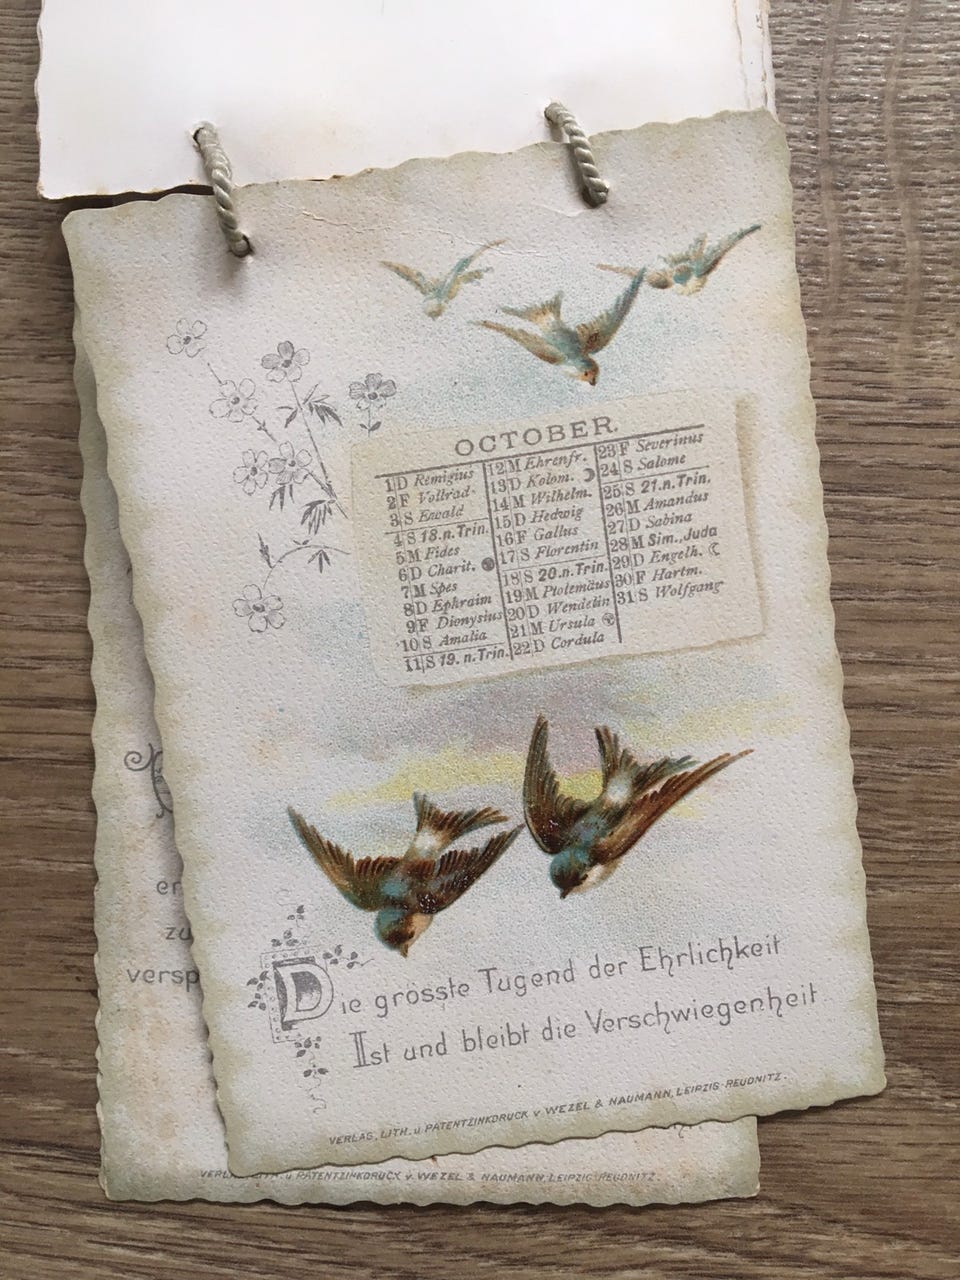 OCTOBER.
1 D Remigius
2 F Vollrad
3 S Ewald
4 S 18. n. Trin.
5 M Fides
6 D Charit.
7 M Spes
8 D Ephraim
9 F Dionysius
10 S Amalia
11 S 19. n. Trin.
12 M Ehrenfr.
13 D Kolom.
14 M Wilhelm.
15 D Hedwig
16 F Gallus
17 S Florentin
18 S 20. n. Trin.
19 M Ptolemäus
20 D Wendelin
21 M Ursula
22 D Cordula
23 F Severinus
24 S Salome
25 S 21. n. Trin.
26 M Amandus
27 D Sabina
28 M Sim., Juda
29 D Engelh.
30 F Hartm.
31 S Wolfgang
Die grösste Tugend der Ehrlichkeit
Ist und bleibt die Verschwiegenheit
VERLAG, LITH. u PATENTZINKDRUCK v. WEZEL & NAUMANN, LEIPZIG-REUDNITZ.
er
zu
versp
VERLAG, LITH. u PATENTZINKDRUCK v. WEZEL & NAUMANN, LEIPZIG-REUDNITZ.